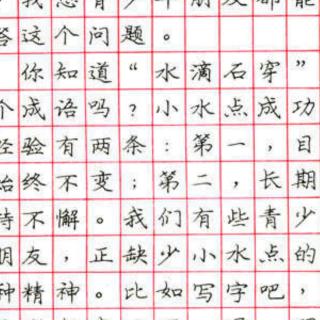 我想青少年朋友都能
答这个问题。
你知道“水滴石穿”
个成语吗?小水点成功
经验有两条:第一,目
始终不变;第二,长期
持不懈。我们有些青少
朋友,正缺少小水点的
种精神。比如写字吧,